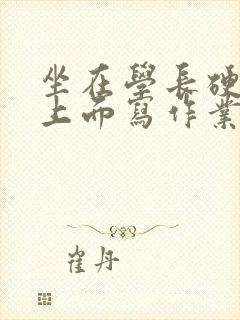 坐在學長硬
上而寫作業
崔丹